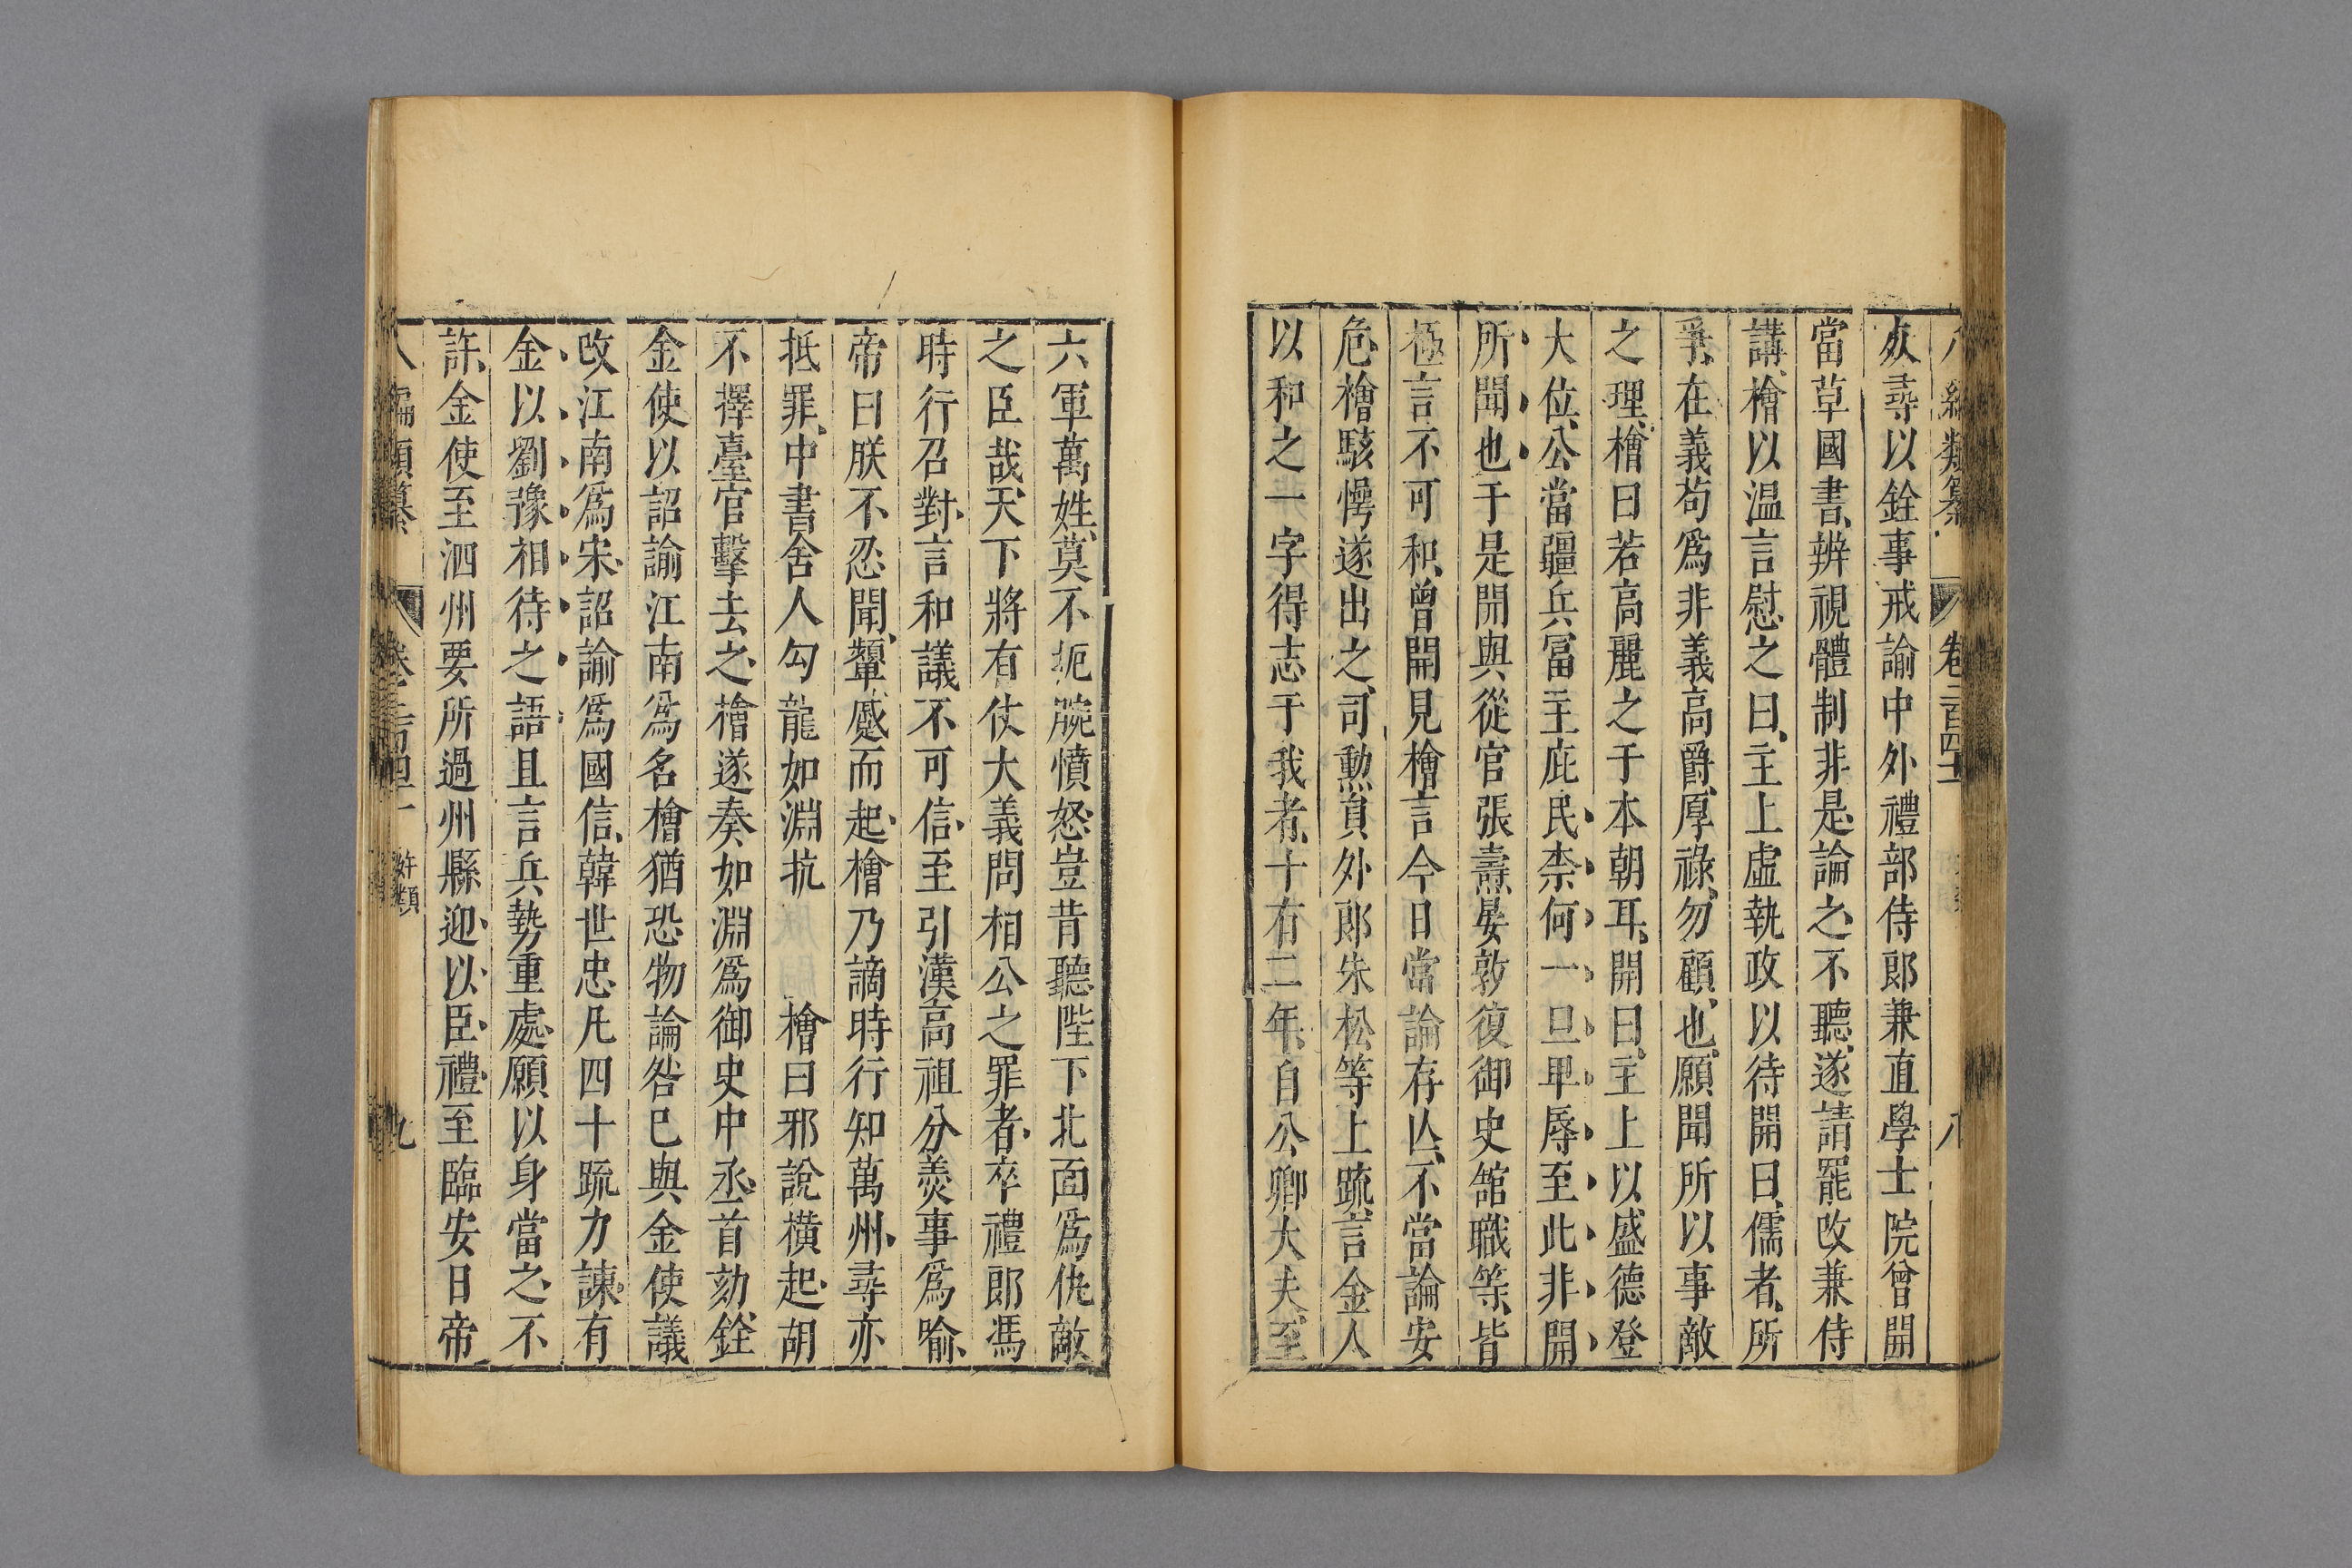 八編類纂 卷二百四十 八
奻尋以銓事戒諭中外禮部侍郎兼直學士院曾開
當草國書辨視體制非是論之不聽遂請罷改兼侍
講檜以温言慰之曰主上虛執政以待開曰儒者所
爭在義苟爲非義高爵厚祿勿顧也願聞所以事敵
之理檜曰若高麗之于本朝耳開曰主上以盛德登
大位公當疆兵冨主庇民柰何一旦𤰞辱至此非開
所聞也于是開與從官張壽晏敦復御史舘職等皆
極言不可和曾開見檜言今日當論存亾不當論安
危檜駭愕遂出之司勲員外郎朱松等上䟽言金人
以和之一字得志于我者十有二年自公卿大夫至
六軍萬姓莫不扼腕憤怒豈昔聽陛下北面爲仇敵
之臣哉天下將有仗大義問相公之罪者卒禮郎馮
時行召對言和議不可信至引漢高祖分羮事爲喻
帝曰朕不忍聞顰蹙而起檜乃謫時行知萬州尋亦
抵罪中書舍人勾龍如淵抗 檜曰邪說橫起胡
不擇臺官擊去之檜遂奏如淵爲御史中丞首劾銓
金使以詔諭江南爲名檜猶恐物論咎巳與金使議
改江南爲宋詔諭爲國信韓世忠凡四十䟽力諫有
金以劉豫相待之語且言兵勢重處願以身當之不
許金使至泗州要所過州縣迎以臣禮至臨安日帝
八編類纂 卷二百四十 奸類 九